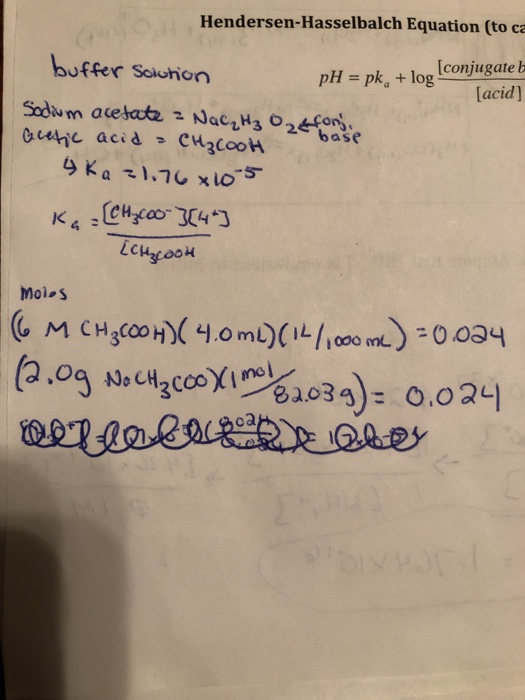 Hendersen-Hasselbalch Equation (to ca
buffer solution
pH = pka + log [conjugate b
[acid]
Sodium acetate = NaC2H3O2 ← conj. base
acetic acid = CH3COOH
↳ Ka = 1.76 x 10^-5
Ka = [CH3COO-][H+]
[CH3COOH
Moles
(6 M CH3COOH)(4.0mL)(1L/1,000mL) = 0.024
(2.0g NaCH3COO)(1mol/82.03g) = 0.024